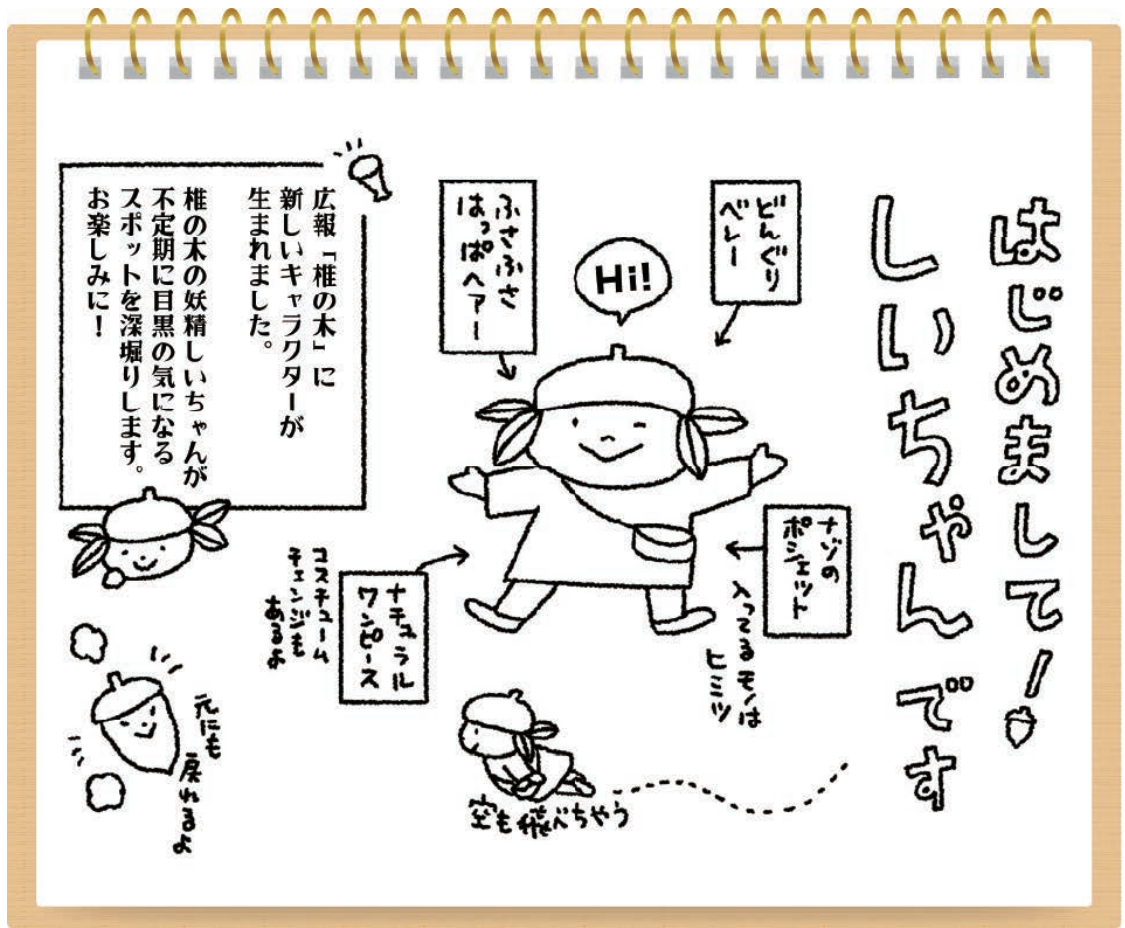 はじめまして!
しいちゃんです
どんぐり
ベレー
Hi!
ふさふさ
はっぱヘアー
ナゾの
ポシェット
入ってるモノは
ヒミツ
ナチュラル
ワンピース
コスチューム
チェンジも
あるよ
空も飛べちゃう
広報「椎の木」に
新しいキャラクターが
生まれました。
椎の木の妖精しいちゃんが
不定期に目黒の気になる
スポットを深堀りします。
お楽しみに!
元にも
戻れるよ